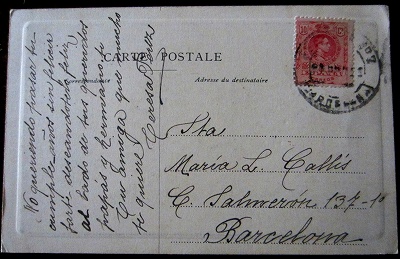 CARTE POSTALE
Correspondance
Adresse du destinataire
No queriendo pasar tu
cumple-años sin felicitarte
deseándotelo feliz
al lado de tus queridos
papas y hermano tu
amiga que mucho
te quiere
Teresa
Sta
María L. Collís
C. Salmerón 137-1º
Barcelona